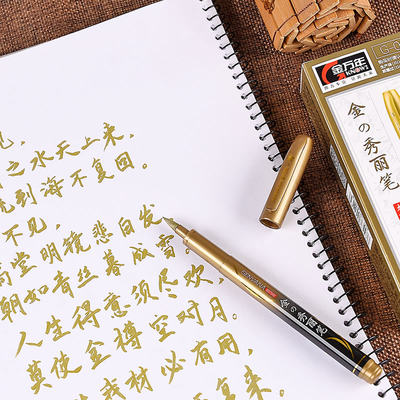 见,
之水天上来,
流到海不复回。
不见,
高堂明镜悲白发
朝如青丝暮成雪。
人生得意须尽欢,
莫使金樽空对月。
我材必有用,
复来。
金の秀丽笔
金万年
KNOWN
G-0
金の秀丽笔